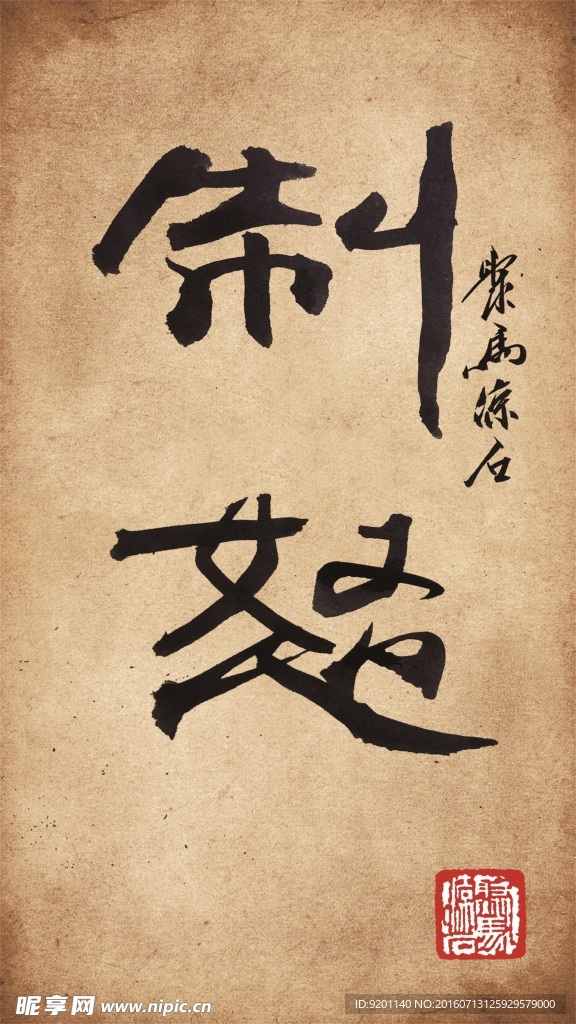 制怒
昵享网 www.nipic.cn
ID:9201140 NO:20160713125929579000